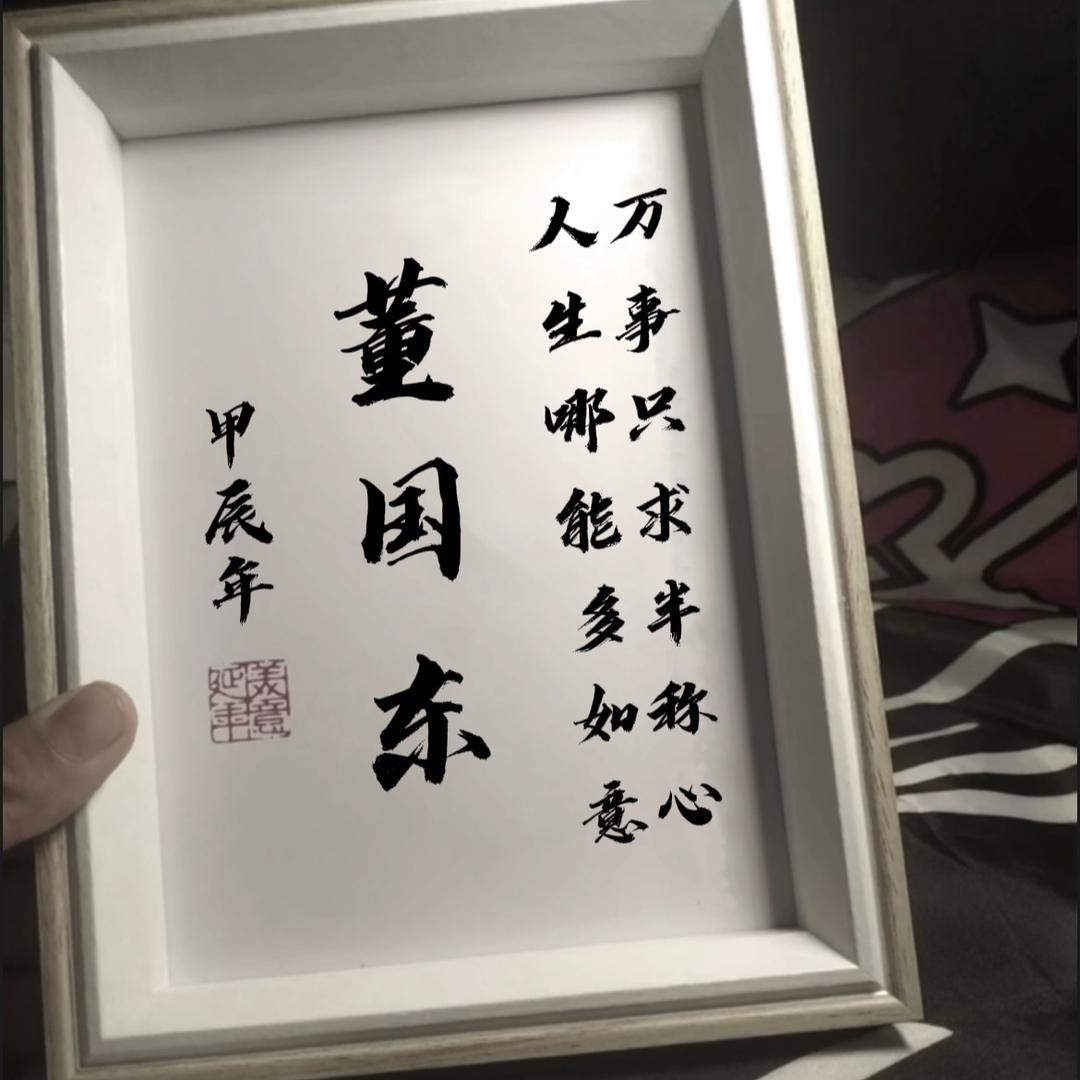 万事只求半称心
人生哪能多如意
董国东
甲辰年
美意延年